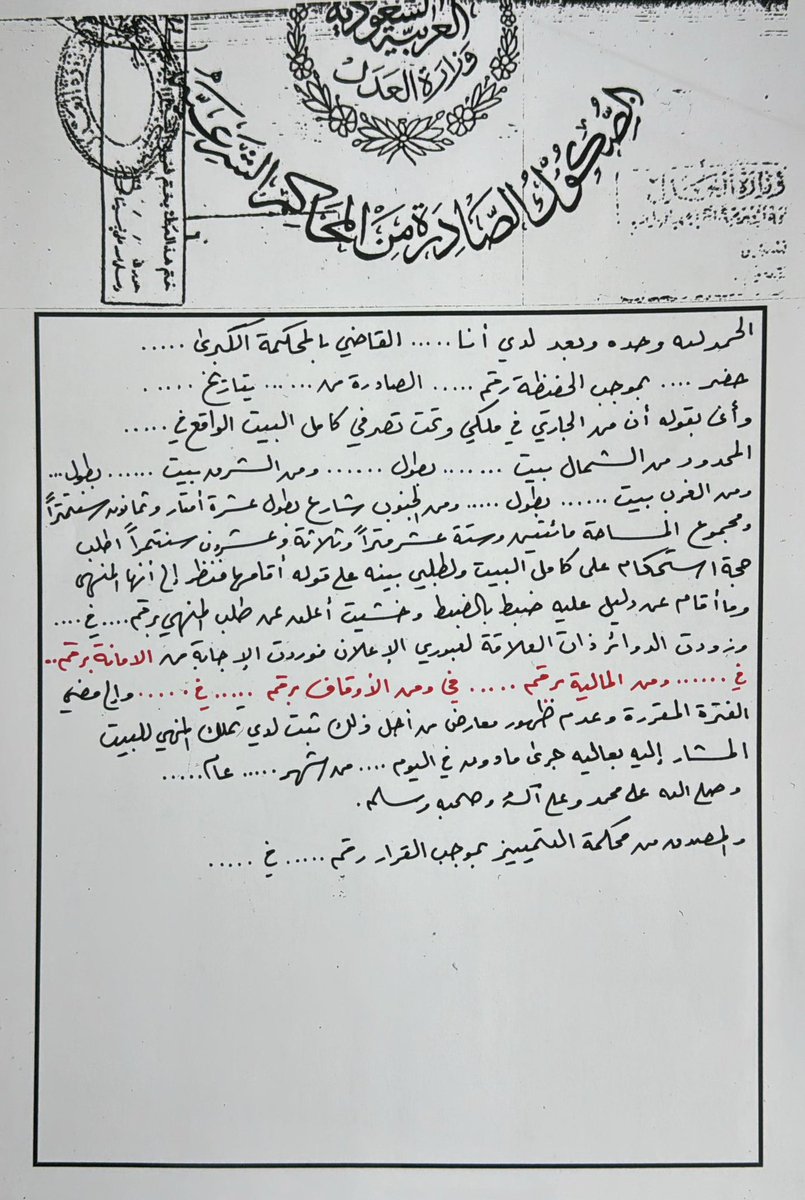 العربية السعودية
وزارة العدل
الصكوك الصادرة من المحاكم الشرعية
وزارة العدل
الحمد لله وحده وبعد لدي أنا ..... القاضي بالمحكمة الكبرى .....
حضر .... بموجب الحفيظة رقم ..... الصادرة من ...... بتاريخ .....
وأنها بقوله أن من الجاري في ملكي وتحت تصرفي كامل البيت الواقع في .....
المحدود من الشمال بيت ....... بطول ...... ومن الشرق بيت ...... بطول ...
ومن الغرب بيت ...... بطول ..... ومن الجنوب شارع بطول عشرة أمتار وثمانون سنتمتراً
ومجموع المساحة مائتين وستة عشر متراً وثلاثة وعشرون سنتمراً اطلب
حجة استحكام على كامل البيت ولطلبي بينه على قوله أقامها فنظر إلى أنها المنهي
وما أقام من دليل عليه ضبط بالضبط وخشيت أعلن عن طلب المنهي برقم .... في ....
وزودت الدوائر ذات العلاقة لفبوري الإعلان فوردت الإجابة من الامانة برقم ..
في ...... ومن المالية برقم ..... في ومن الأوقاف برقم ..... في ..... وإلى مضي
الفترة المقررة وعدم ظهور معارض من أجل ذلك ثبت لدي تملك المنهي للبيت
المشار إليه بعاليه جرى مادون في اليوم .... من شهر ..... عام .....
وصلى الله على محمد وعلى آله وصحبه وسلم.
والمصدق من محكمة التمييز بموجب القرار رقم ..... في .....